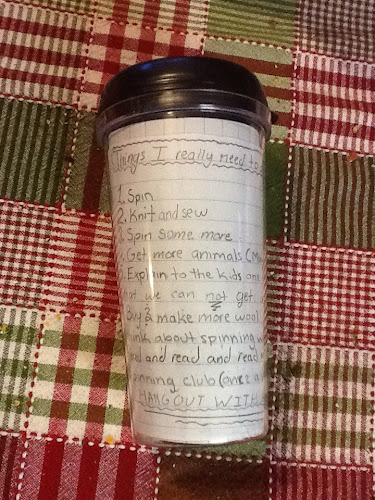 Things I really need to
1. Spin
2. Knit and sew
3. Spin some more
Get more animals
5. Explain to the kids one
we can not get
Buy & make more wool
think about spinning
and read and read
spinning club (once a
HANG OUT WITH